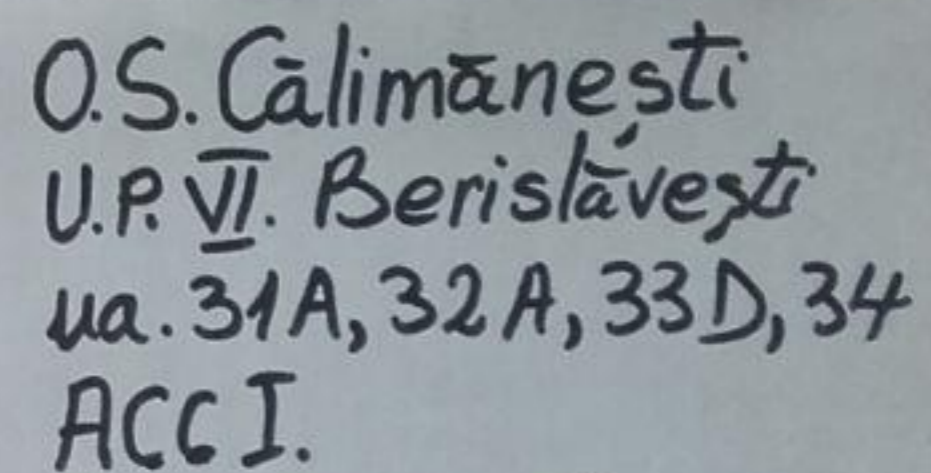 O.S. Călimănești
U.P. VI. Berislăvești
ua. 31A, 32A, 33D, 34
ACC I.